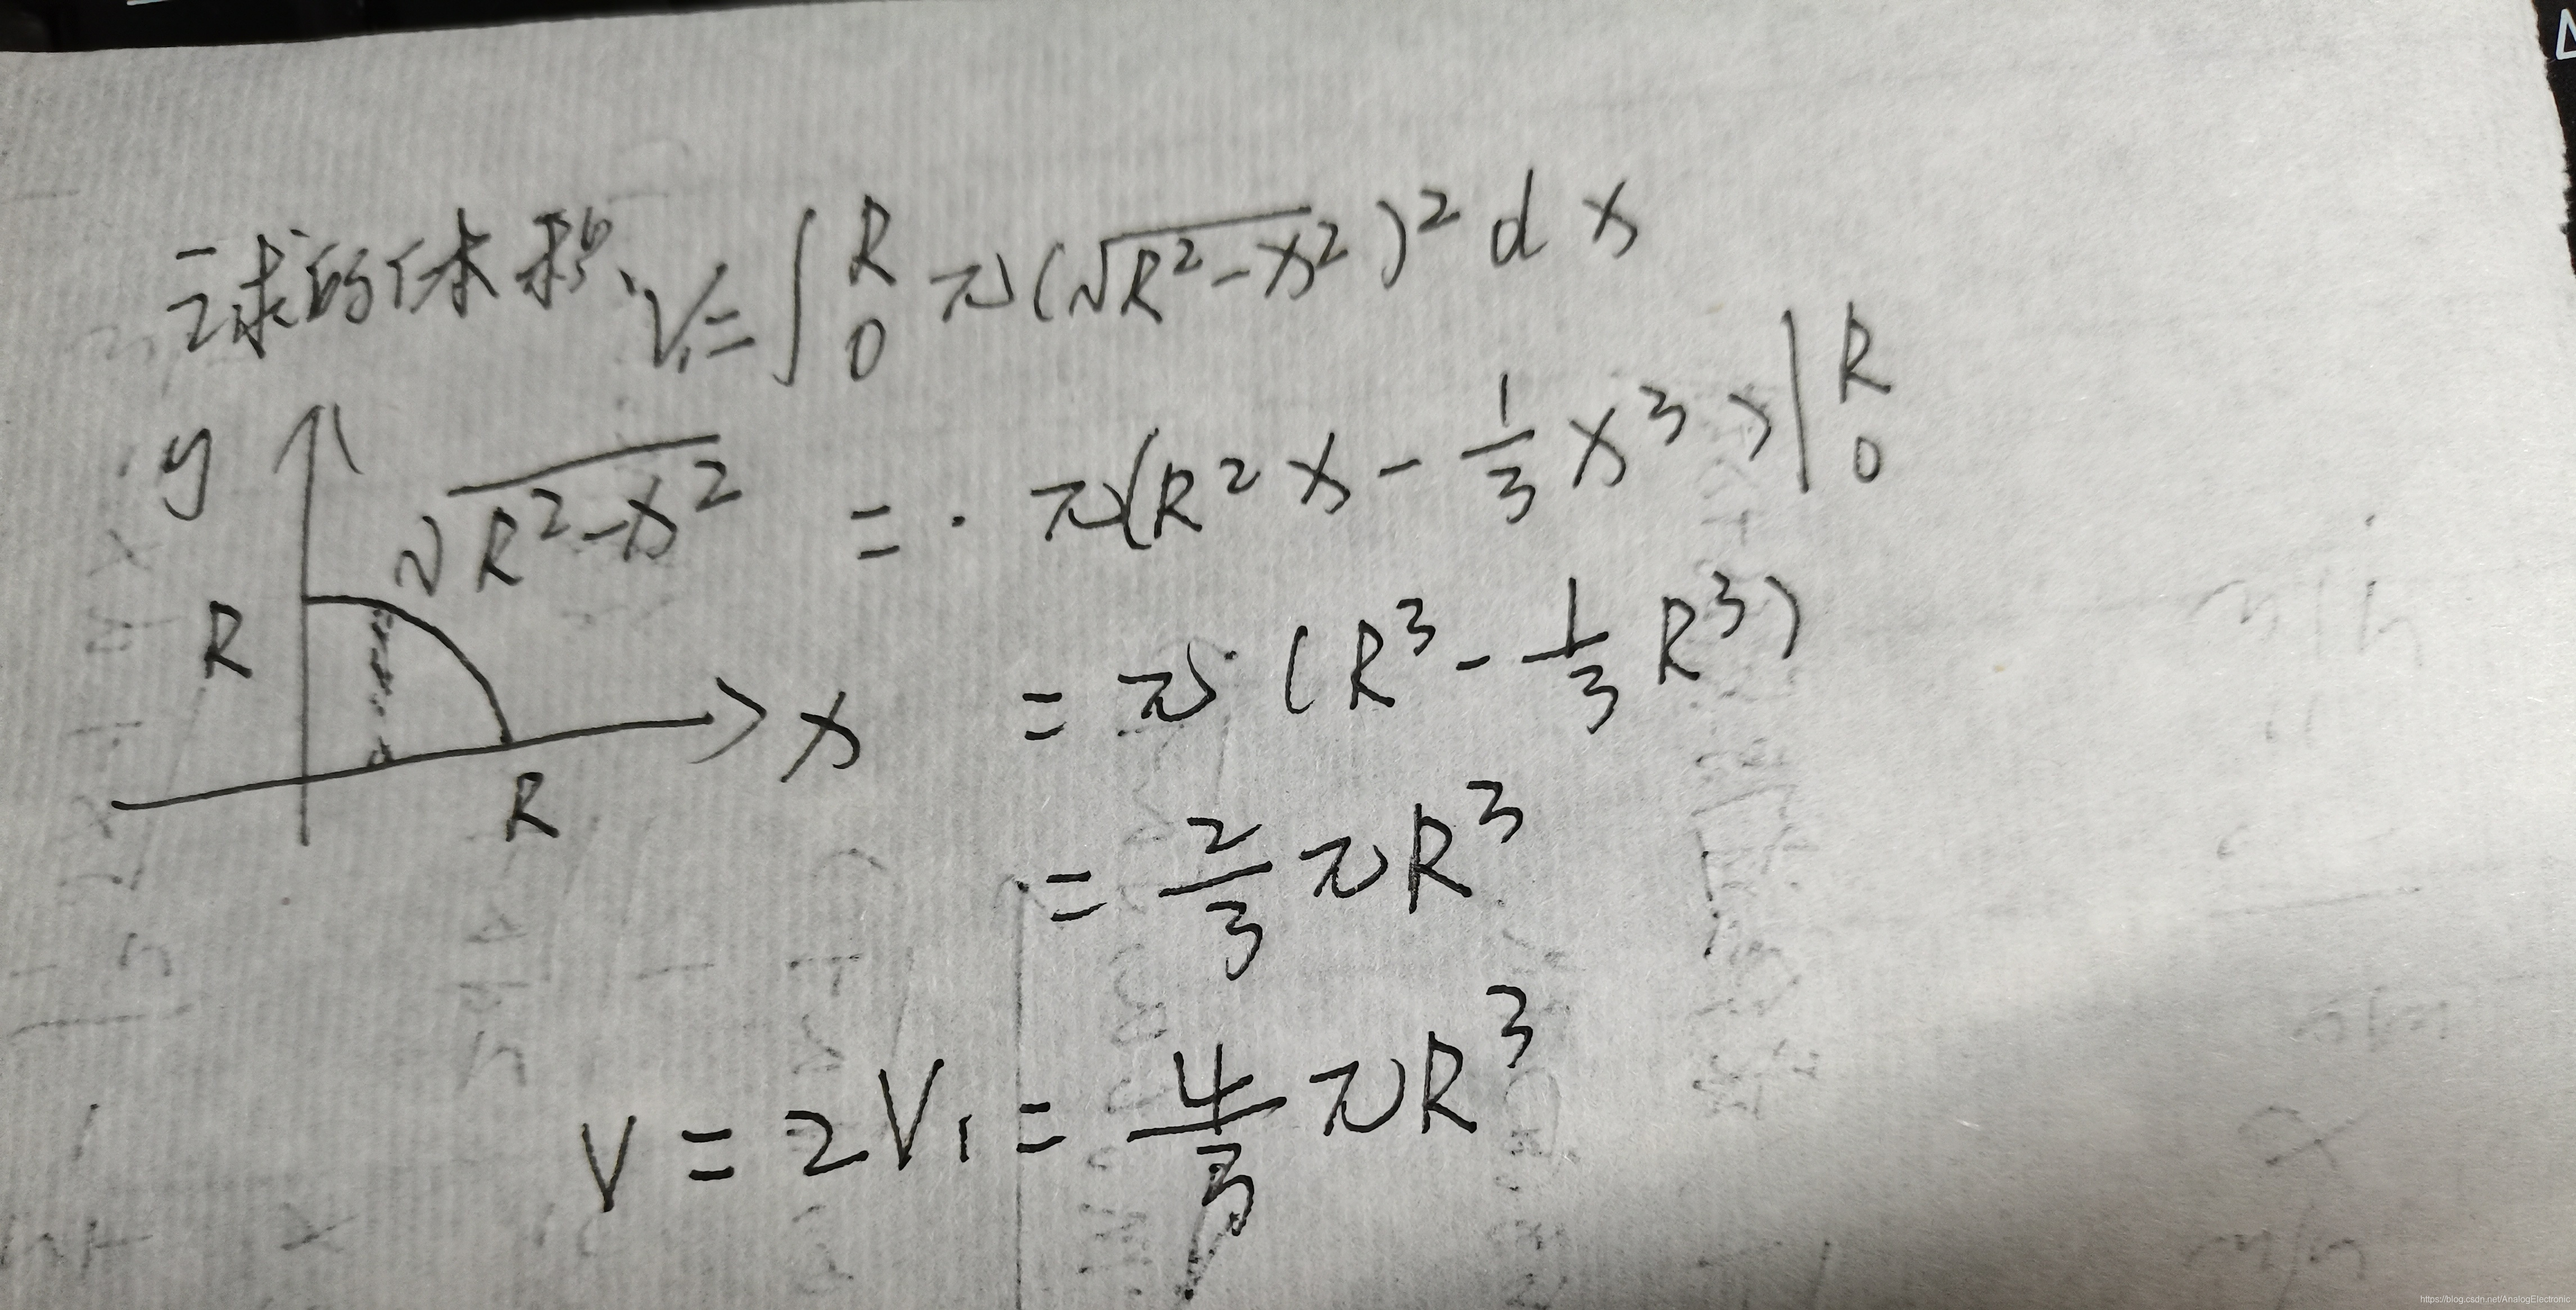 球的体积, V₁ = ∫₀ᴿ π(√(R²-x²))² dx
y
√(R²-x²)
= π(R²x - 1/3 x³)|₀ᴿ
R
x
= π(R³ - 1/3 R³)
R
= 2/3 πR³
V = 2V₁ = 4/3 πR³
https://blog.csdn.net/AnalogElectronic